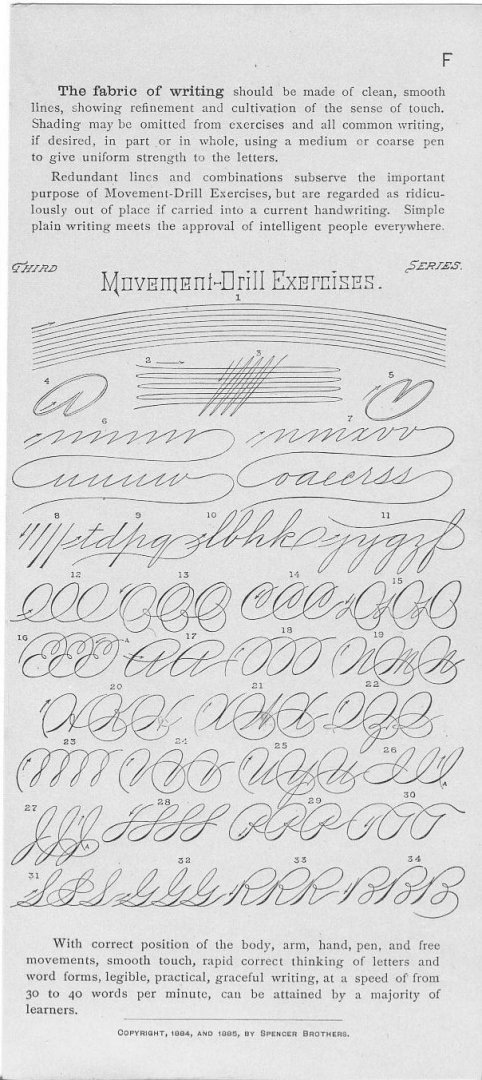 F
The fabric of writing should be made of clean, smooth
lines, showing refinement and cultivation of the sense of touch.
Shading may be omitted from exercises and all common writing,
if desired, in part or in whole, using a medium or coarse pen
to give uniform strength to the letters.
Redundant lines and combinations subserve the important
purpose of Movement-Drill Exercises, but are regarded as ridicu-
lously out of place if carried into a current handwriting. Simple
plain writing meets the approval of intelligent people everywhere.
THIRD SERIES.
Movement-Drill Exercises.
1
2 3
4 5
6 7
nmxvv
uuuuw oaecrss
8 9 10 11
tdpq lbhk jygzf
12 13 14 15
16 A 17 18 19
20 21 22
23 24 25 26
A
27 28 29 30
A
31 32 33 34
S S S G G G R R R B B B
With correct position of the body, arm, hand, pen, and free
movements, smooth touch, rapid correct thinking of letters and
word forms, legible, practical, graceful writing, at a speed of from
30 to 40 words per minute, can be attained by a majority of
learners.
COPYRIGHT, 1884, AND 1885, BY SPENCER BROTHERS.